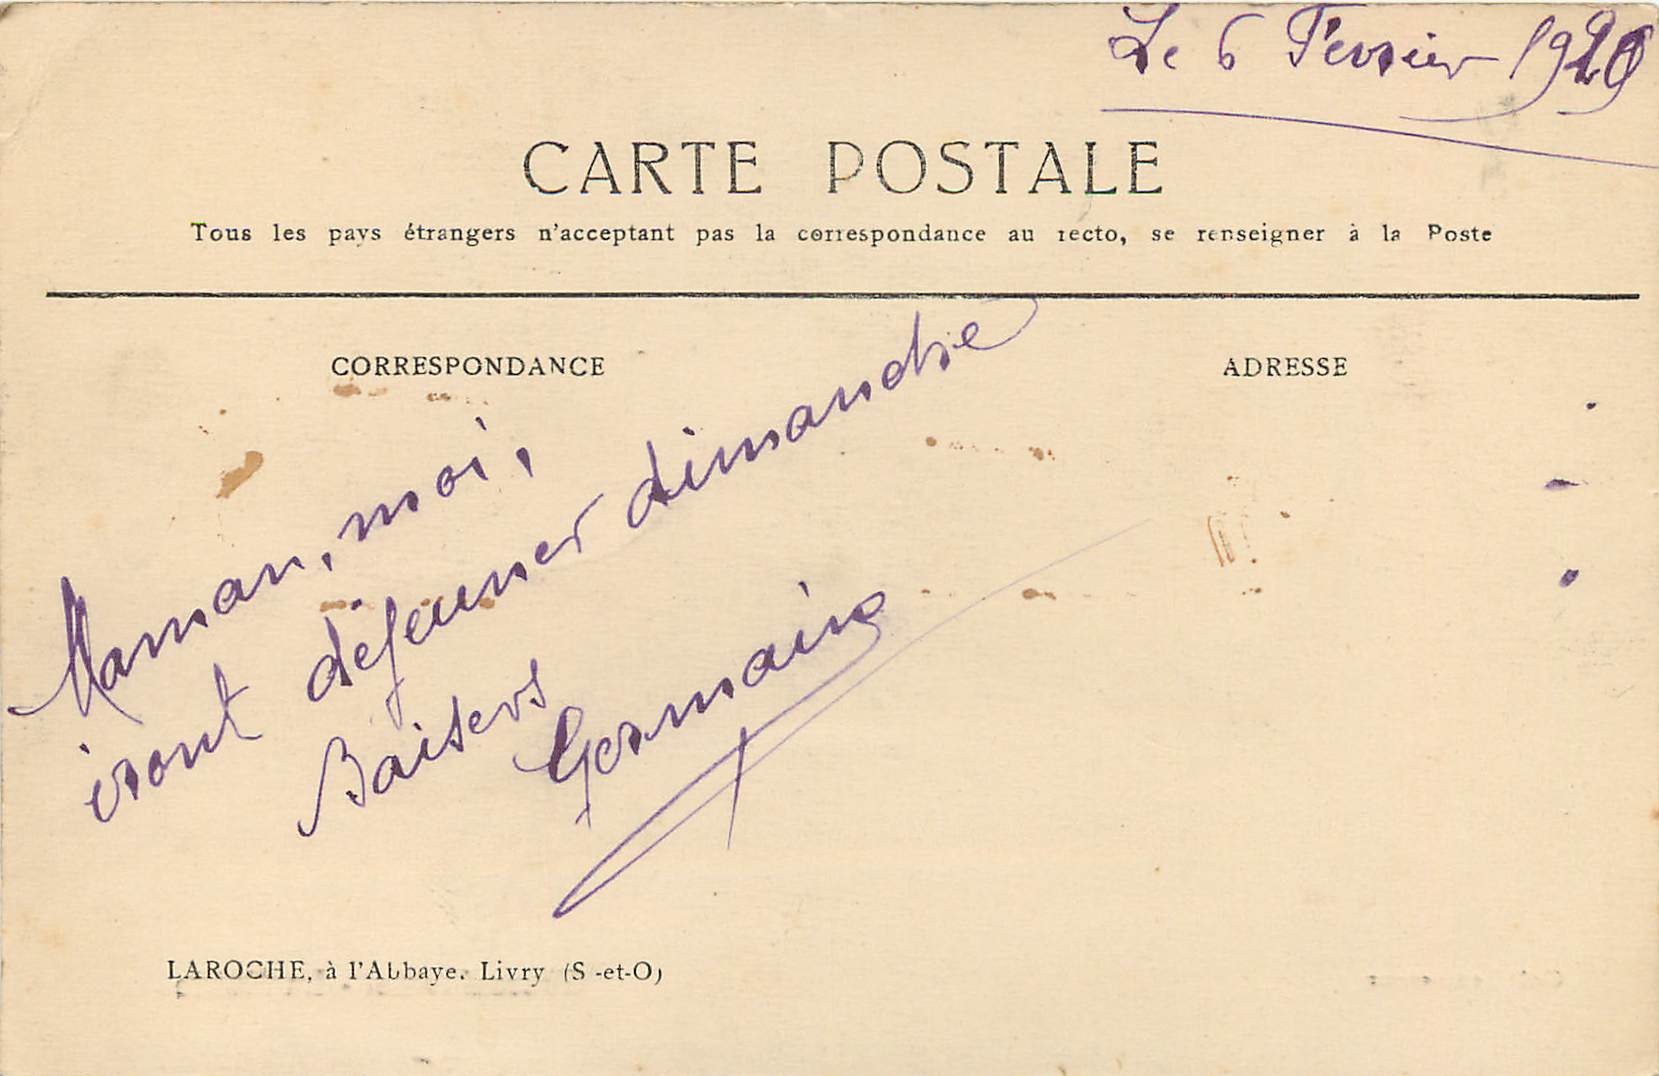 Le 6 Fevrier 1920
CARTE POSTALE
Tous les pays étrangers n'acceptant pas la correspondance au recto, se renseigner à la Poste
CORRESPONDANCE
ADRESSE
Maman, moi,
iront déjeuner dimanche
Baisers
Germaine
LAROCHE, à l'Abbaye. Livry (S-et-O)